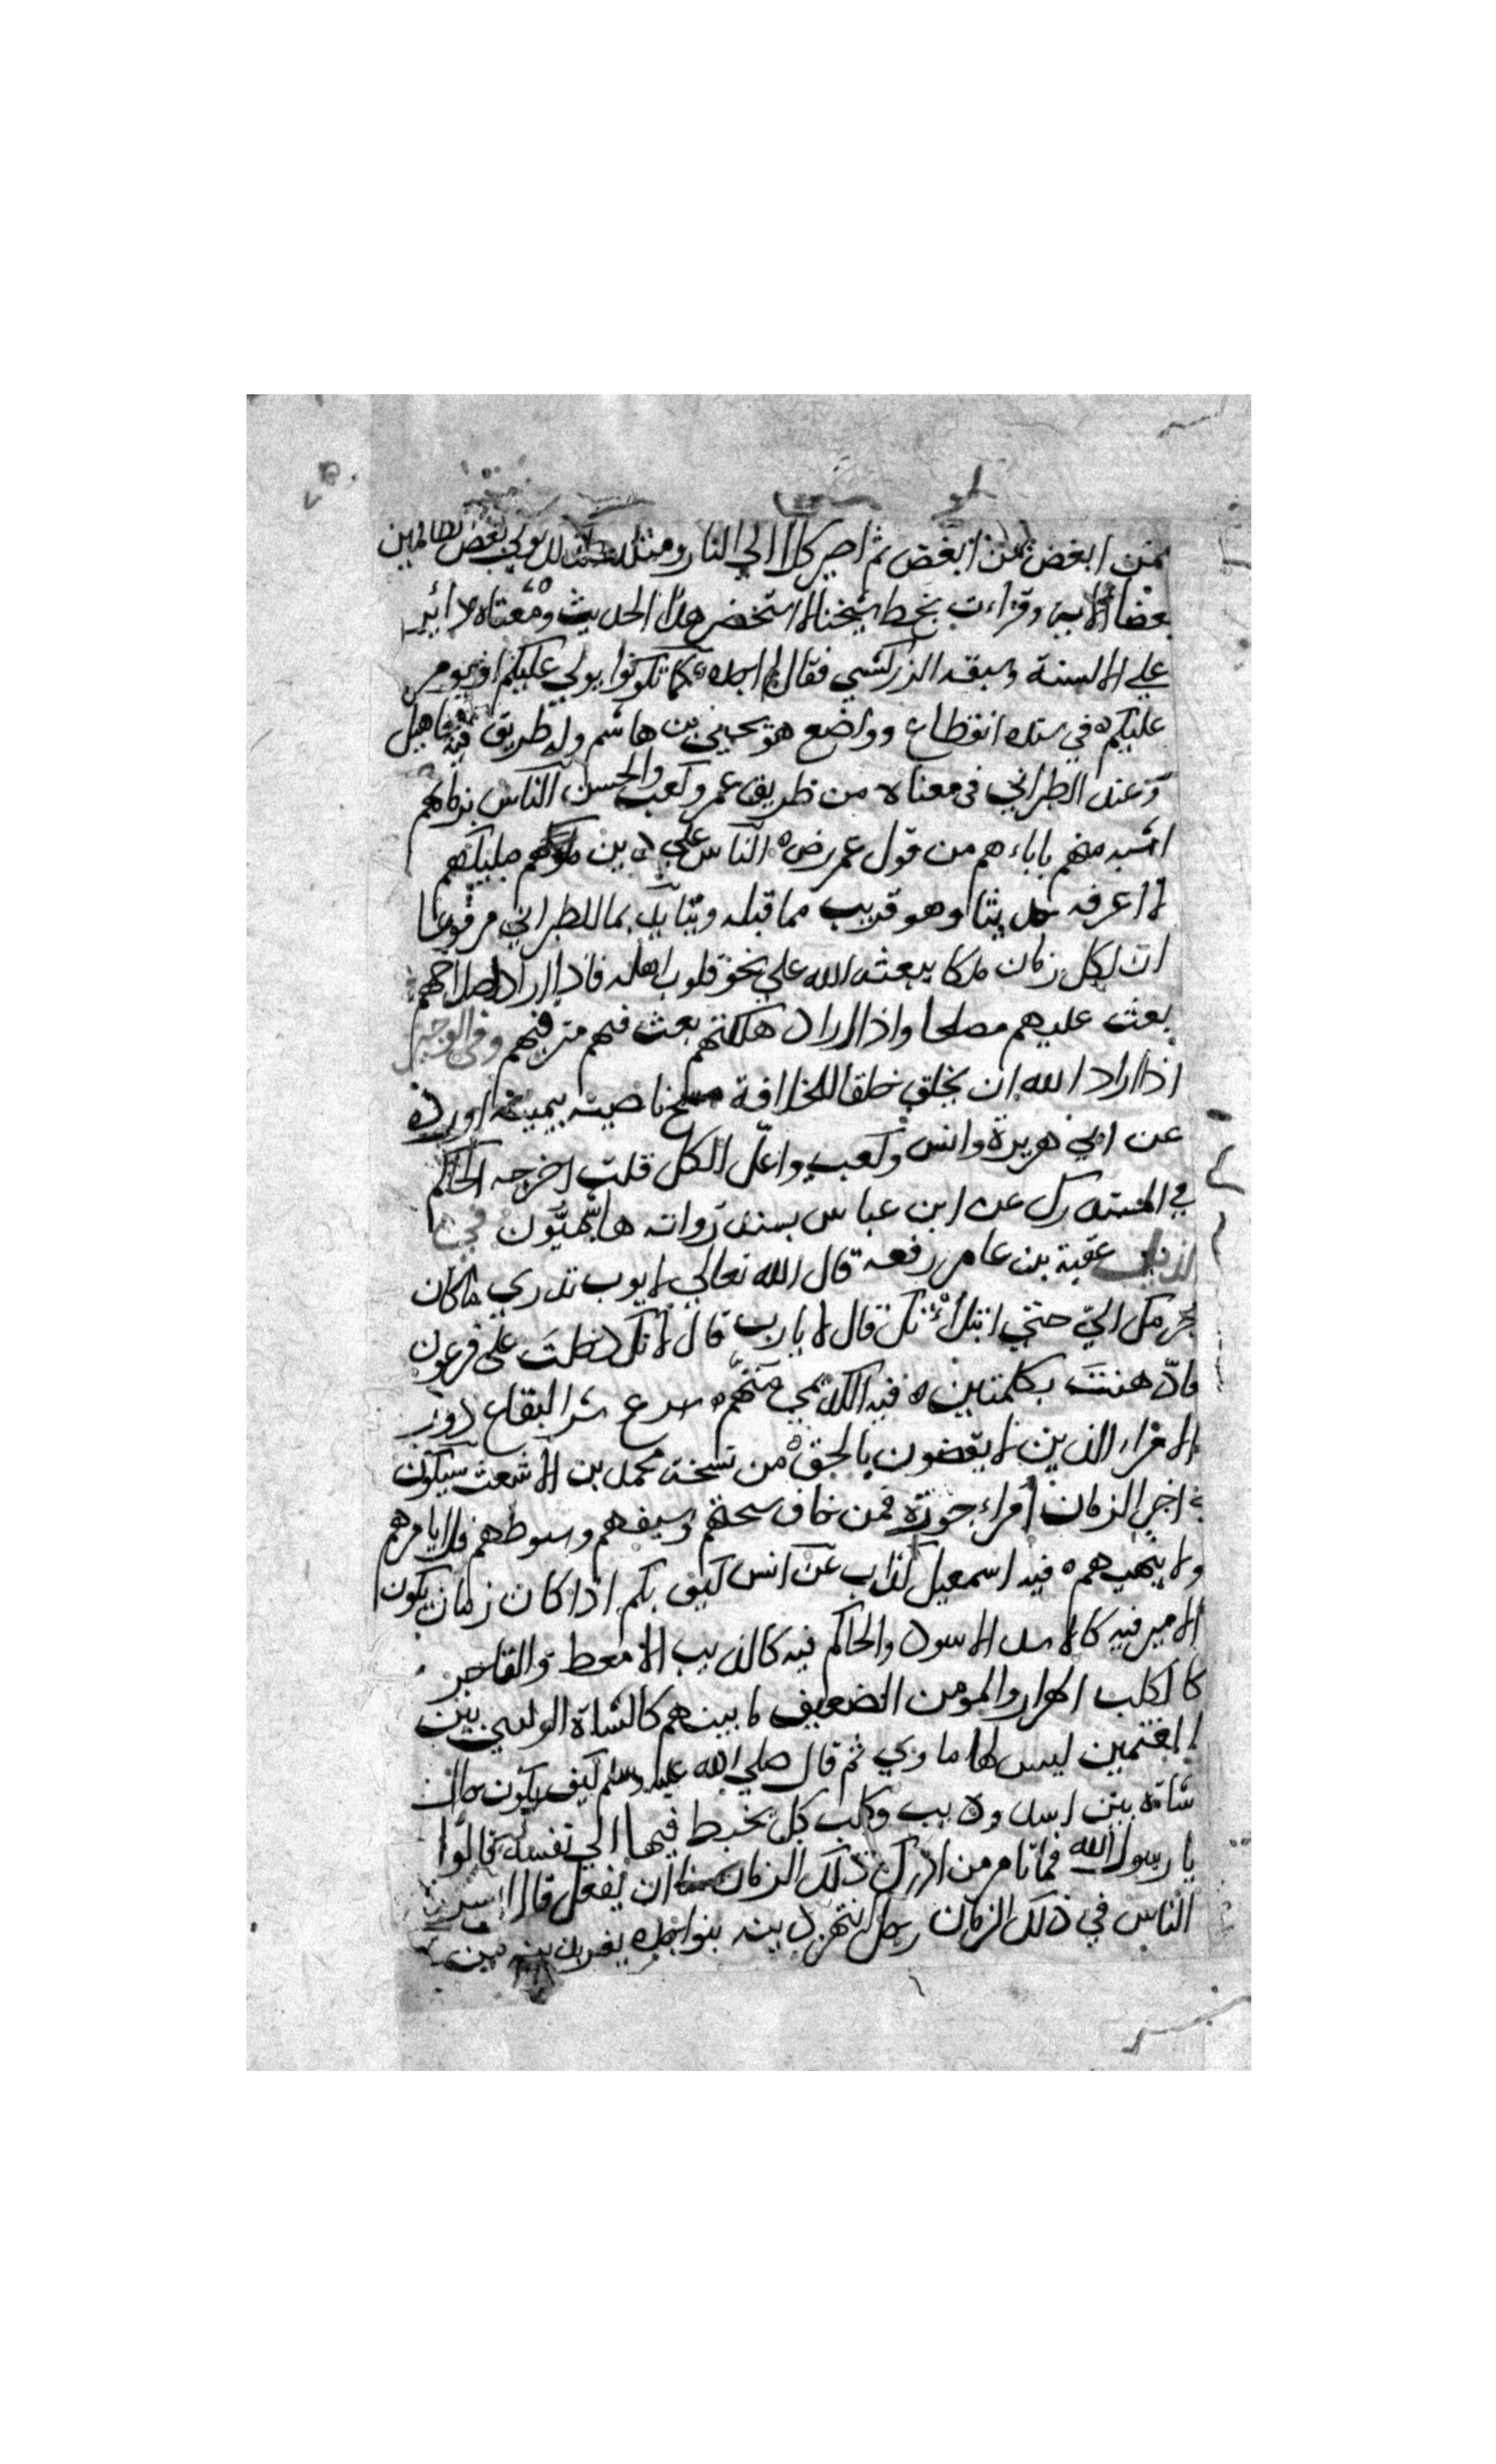 بمن ابغض من ابغض ثم اصير كلا الي النار ومثله كذلك نولي بعض الظالمين
بعضا الاية وقراءت بخط شيخنا لا استحضر هذا الحديث ومعناه دائر
علي الالسنة وسبقه الزركشي فقال لم اجده كما تكونوا يولي عليكم او يومر
عليكم في سنده انقطاع وواضع هو يحيي بن هاشم وله طريق فيه مجاهيل
وعند الطبراني في معناه من طريق عمر وكعب والحسن الناس بزمانهم
اشبه منهم باباءهم من قول عمر رض الناس علي دين ملوكهم مليكهم
لا اعرفه حديثا وهو قريب مما قبله ويتايد بما للطبراني مرفوعا
ان لكل زمان ملكا يبعثه الله علي نحو قلوب اهله فاذا اراد اصلاحهم
بعث عليهم مصلحا واذا اراد هلكتهم بعث فيهم مترفيهم وفي الوجيز
اذا اراد الله ان يخلق خلقا للخلافة مسح ناصيته بيمينه اورده
عن ابي هريرة وانس وكعب واعل الكل قلت اخرجه الحاكم
في المستدرك عن ابن عباس بسند رواته هاشميون في
الذيل عقبة بن عامر رفعه قال الله تعالي لايوب تدري ما كان
جرمك الي حتي ابتلاءتك قال لا يارب قال لانك دخلت علي فرعون
فادهنت بكلمتين فيه الكديمي متهم سرع شر البقاع دور
الامراء الذين لا يقضون بالحق من نسخة محمد بن الاشعث سيكون
في اخر الزمان امراء جورة فمن خاف سجنهم وسيفهم وسوطهم فلا يامرهم
ولا ينهيهم فيه اسمعيل كذاب عن انس كيف بكم اذا كان زمان يكون
الامير فيه كالاسد الاسود والحاكم فيه كالذيب الامعط والفاجر
كالكلب الهرار والمومن الضعيف ما بينهم كالشاة الولهي بين
الغنمين ليس لها ماوي ثم قال صلي الله عليه وسلم كيف يكون حال
شاة بين اسد وذيب وكلب كل يخبط فيها الي نفسه قالوا
يا رسول الله فما تامر من ادرك ذلك الزمان ان يفعل قال
الناس في ذلك الزمان رجل انتهز دينه بنواجذه يفر بدينه من